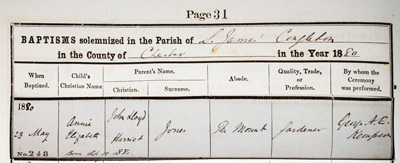 Page 31
BAPTISMS solemnized in the Parish of St. James' Congleton
in the County of Chester in the Year 1880
When Baptized. Child's Christian Name Parent's Name. Christian. Surname. Abode. Quality, Trade, or Profession. By whom the Ceremony was performed.
1880
23 May
No. 248
Annie
Elizabeth
Born Apr
John Lloyd
Harriet
Jones
The Mount
Gardener
Kempson